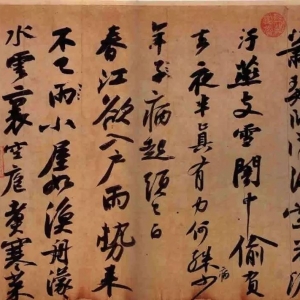 蕭瑟臥聞海棠花
汙燕支雪闇中偷負
去夜半真有力何殊病少
年子病起頭已白
春江欲入戶雨勢來
不已雨小屋如漁舟濛
水雲裏空庖煮寒菜